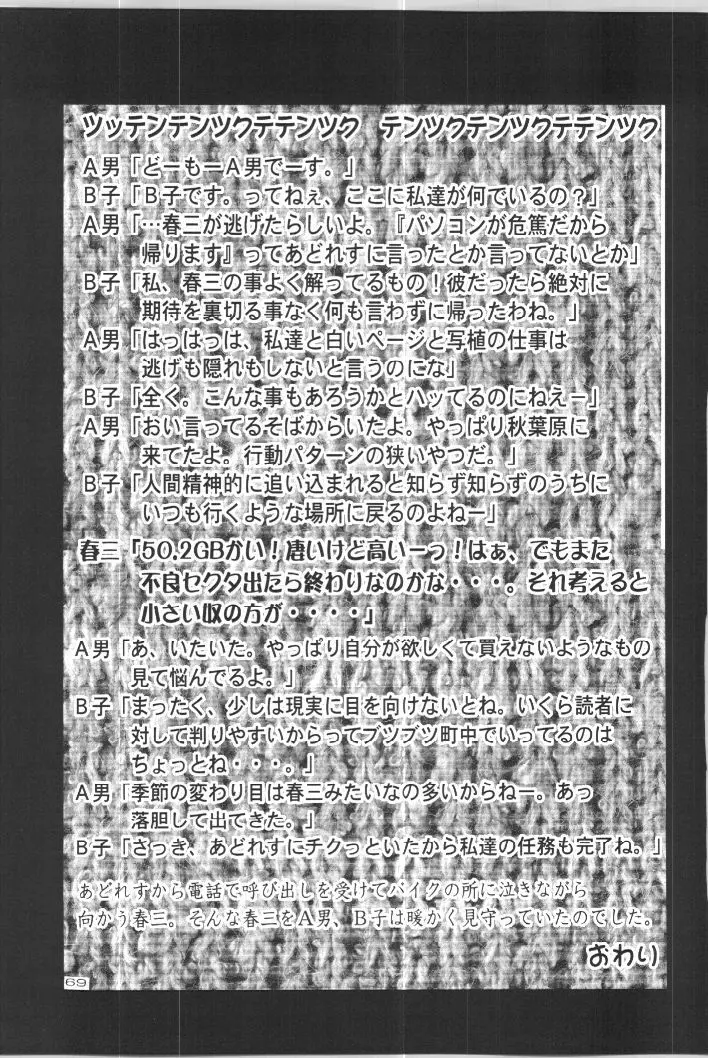 ツッテンテンツクテテンツク　テンツクテンツクテテンツク
A男「どーもーA男でーす。」
B子「B子です。ってねぇ、ここに私達が何でいるの？」
A男「…春三が逃げたらしいよ。『パソコンが危篤だから
帰ります』ってあどれすに言ったとか言ってないとか」
B子「私、春三の事よく解ってるもの！彼だったら絶対に
期待を裏切る事なく何も言わずに帰ったわね。」
A男「はっはっは、私達と白いページと写植の仕事は
逃げも隠れもしないと言うのにな」
B子「全く。こんな事もあろうかとハッてるのにねえー」
A男「おい言ってるそばからいたよ。やっぱり秋葉原に
来てたよ。行動パターンの狭いやつだ。」
B子「人間精神的に追い込まれると知らず知らずのうちに
いつも行くような場所に戻るのよねー」
春三「50.2GBかい！凄いけど高いーっ！はぁ、でもまた
不良セクタ出たら終わりなのかな・・・。それ考えると
小さい奴の方が・・・・」
A男「あ、いたいた。やっぱり自分が欲しくて買えないようなもの
見て悩んでるよ。」
B子「まったく、少しは現実に目を向けないとね。いくら読者に
対して判りやすいからってブツブツ町中でいってるのは
ちょっとね・・・。」
A男「季節の変わり目は春三みたいなの多いからねー。あっ
落胆して出てきた。」
B子「さっき、あどれすにチクっといたから私達の任務も完了ね。」
あどれすから電話で呼び出しを受けてバイクの所に泣きながら
向かう春三。そんな春三をA男、B子は暖かく見守っていたのでした。
おわり
69